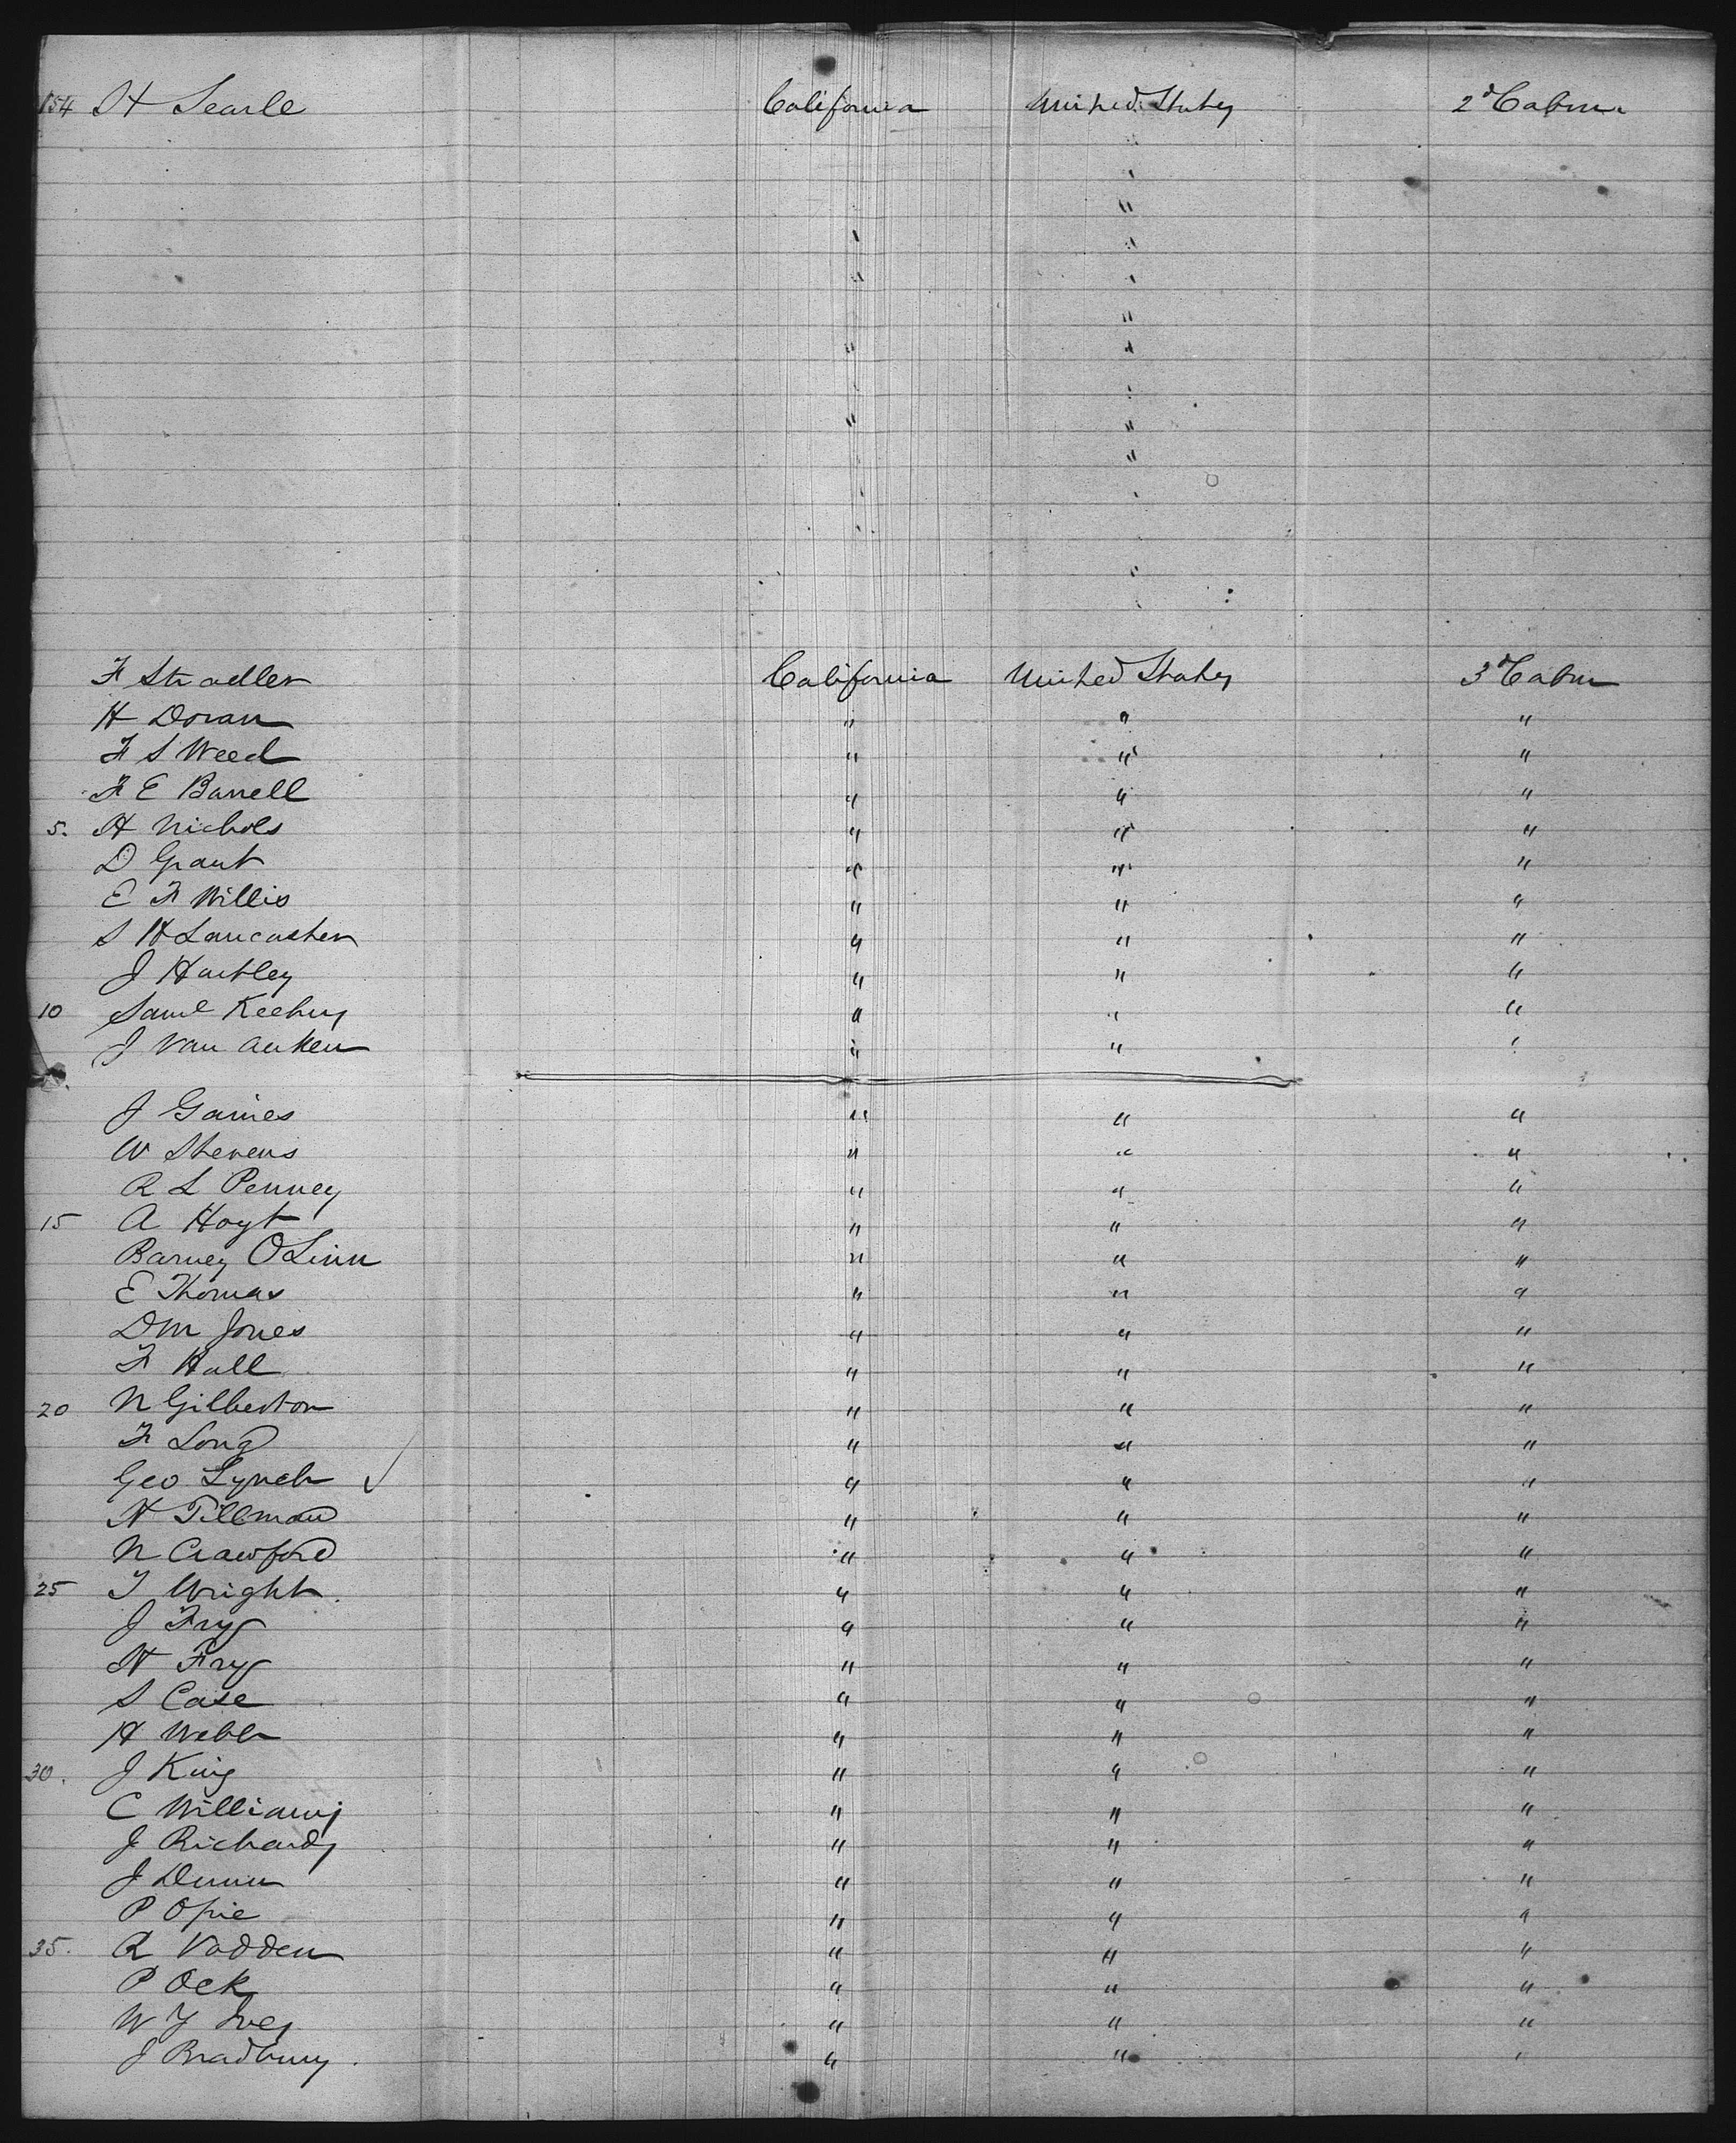 154 H Searle California United States 2d Cabin
F Stradler California United States 3d Cabin
H Doran " " "
F S Weed " " "
F E Barrell " " "
5. H Nichols " " "
D Grant " " "
E F Willis " " "
S H Lancaster " " "
J Hartley " " "
10 Saml " " "
J Van Auken " " "
J Gaines " " "
W Stevens " " "
R L Penney " " "
15 A Hoyt " " "
Barney OLinn " " "
E Thomas " " "
D M Jones " " "
F Hall " " "
20 N Gilbertson " " "
F Long " " "
Geo Lynch ✓ " " "
H Tillman " " "
N Crawford " " "
25 T Wright " " "
J Fry " " "
H Fry " " "
S Case " " "
H Webb " " "
30. J King " " "
C Williams " " "
J Richards " " "
J Dunn " " "
P Opie " " "
35. R Vodden " " "
P Ock " " "
W Y Ives " " "
J Bradbury " " "